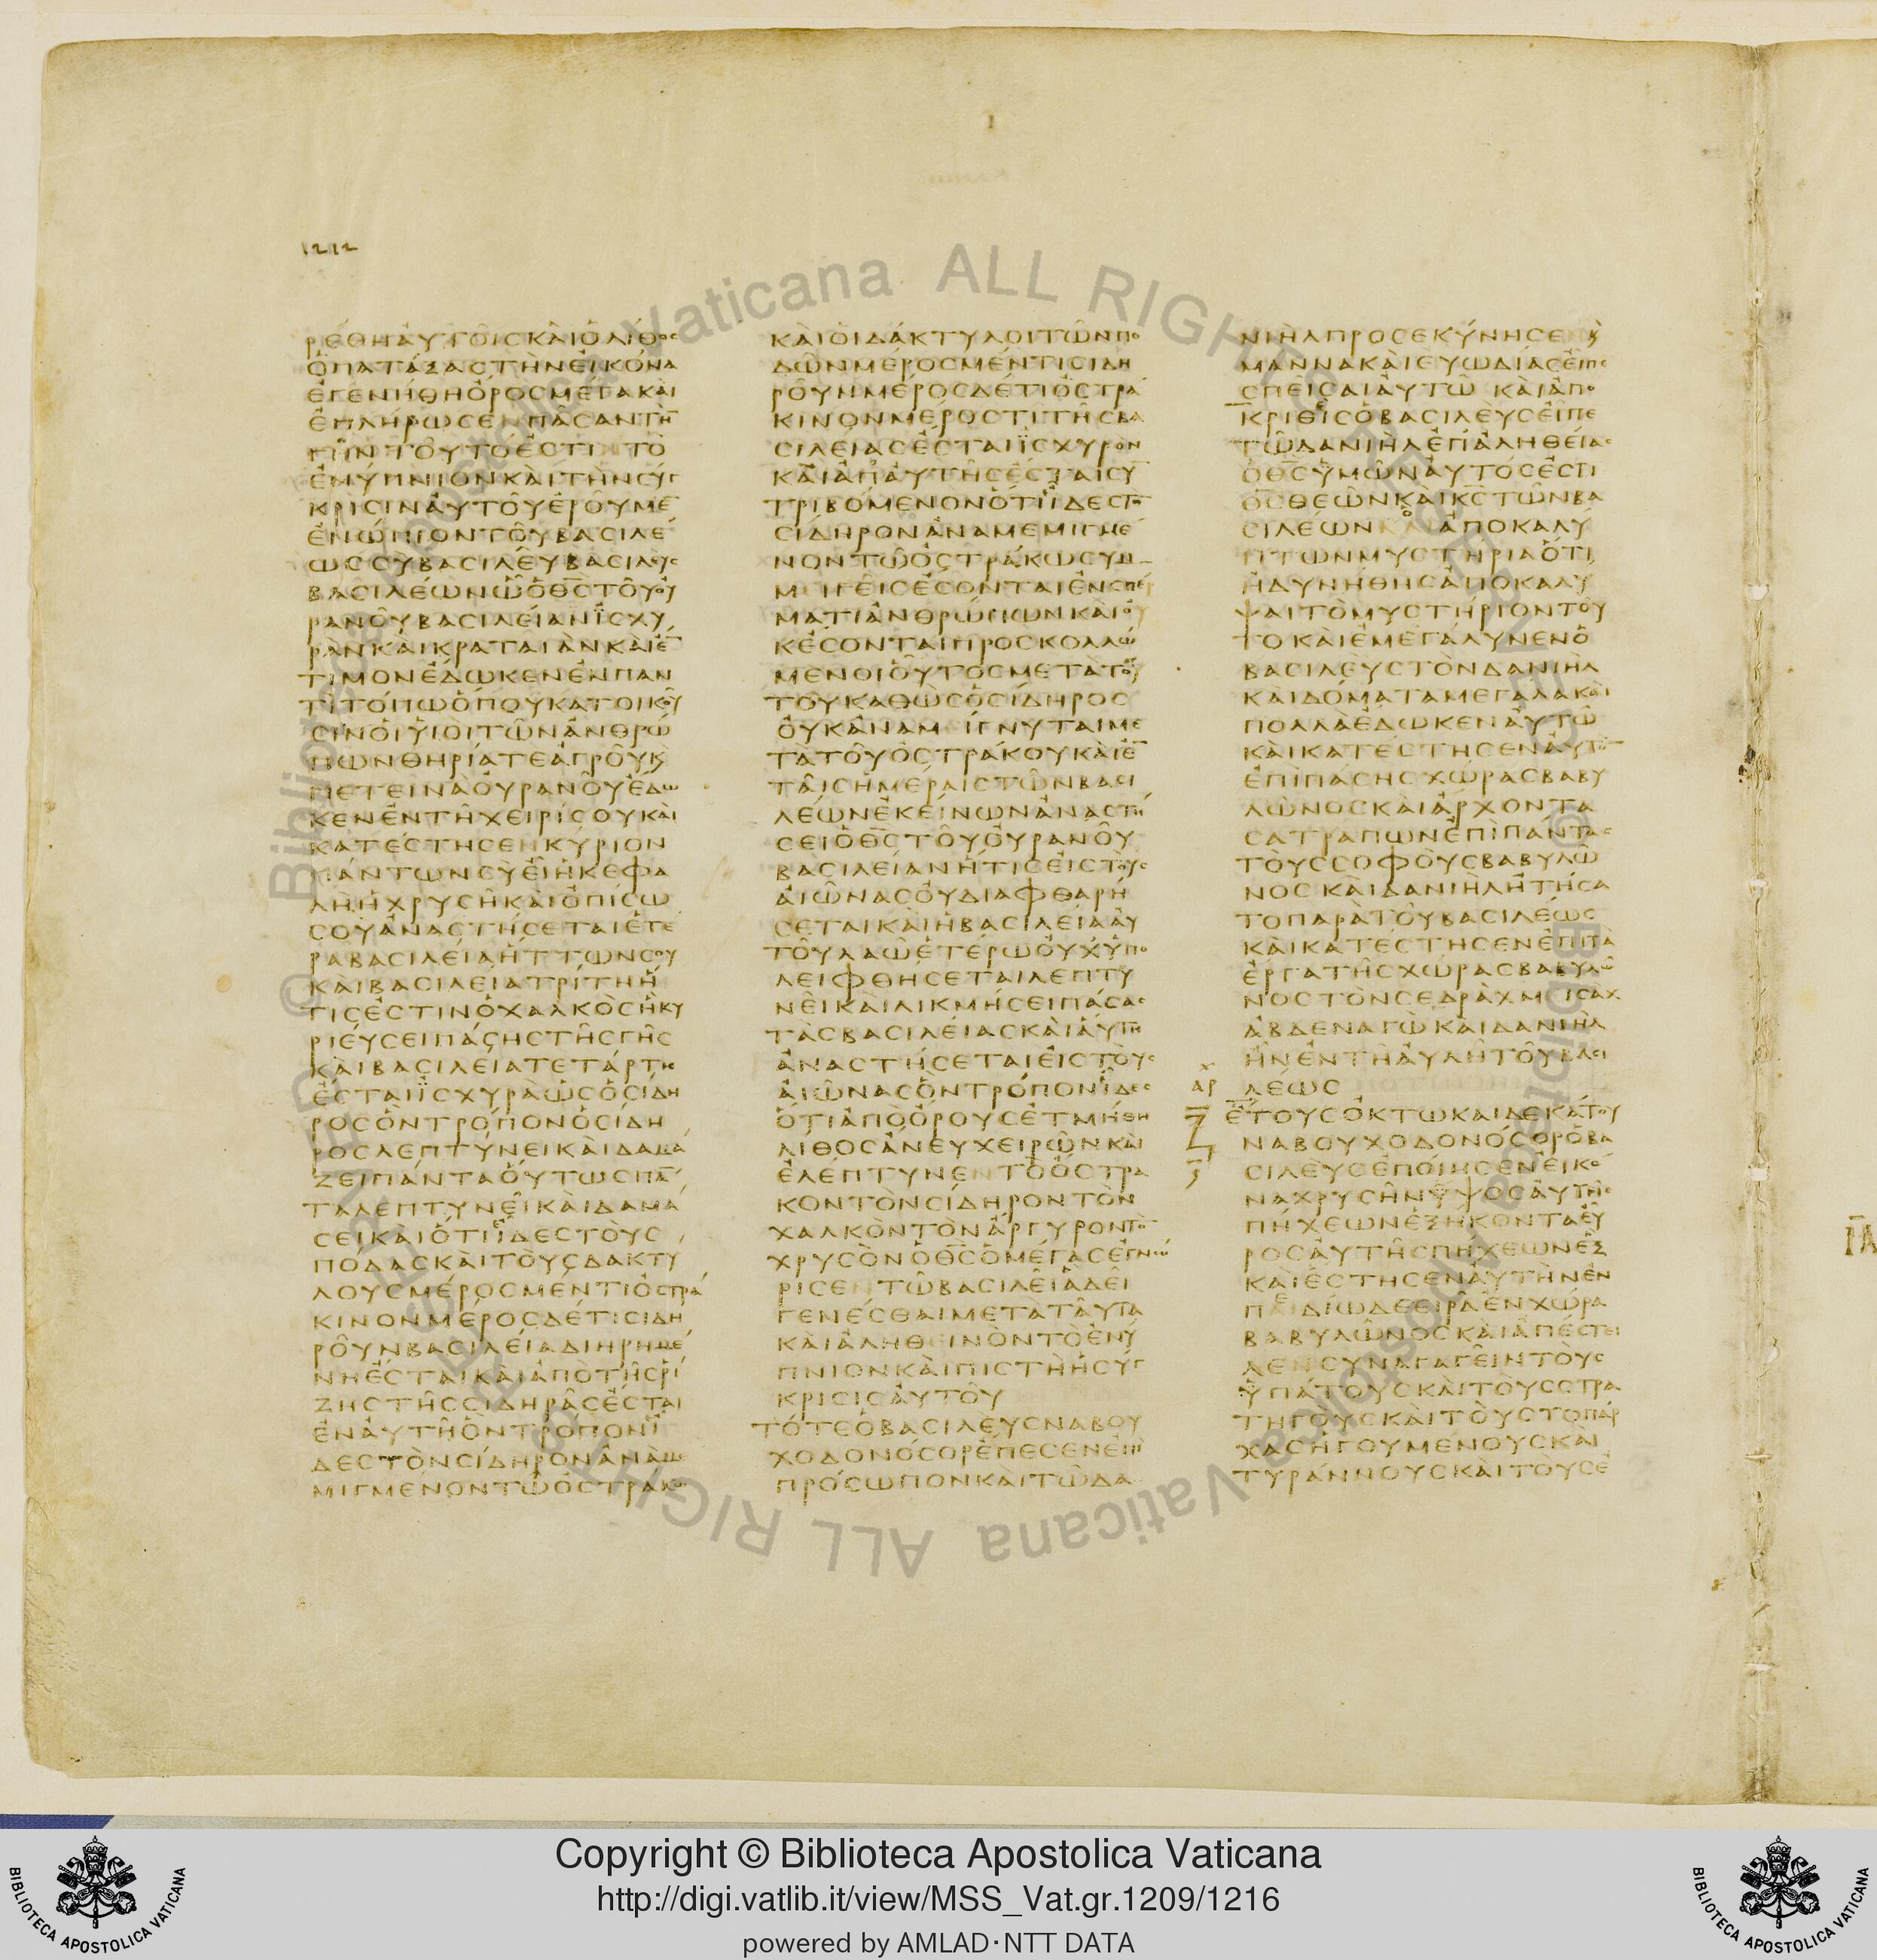 1212
ΡΕΘΗΑΥΤΟΙΣΚΑΙΟΛΙΘΟΣ
ΟΠΑΤΑΞΑΣΤΗΝΕΙΚΟΝΑ
ΕΓΕΝΗΘΗΟΡΟΣΜΕΓΑΚΑΙ
ΕΠΛΗΡΩΣΕΝΠΑΣΑΝΤΗ̅
ΓΗΝΤΟΥΤΟΕΣΤΙΝΤΟ
ΕΝΥΠΝΙΟΝΚΑΙΤΗΝΣΥΓ
ΚΡΙΣΙΝΑΥΤΟΥΕΡΟΥΜΕ̅
ΕΝΩΠΙΟΝΤΟΥΒΑΣΙΛΕ
ΩΣΣΥΒΑΣΙΛΕΥΒΑΣΙΛΕΥΣ
ΒΑΣΙΛΕΩΝΩΟΘ̅Σ̅ΤΟΥΟΥ
ΡΑΝΟΥΒΑΣΙΛΕΙΑΝΪΣΧΥ
ΡΑΝΚΑΙΚΡΑΤΑΙΑΝΚΑΙΕ̅
ΤΙΜΟΝΕΔΩΚΕΝΕΝΠΑΝ
ΤΙΤΟΠΩΟΠΟΥΚΑΤΟΙΚΟΥ
ΣΙΝΟΙΥΙΟΙΤΩΝΑΝΘΡΩ
ΠΩΝΘΗΡΙΑΤΕΑΓΡΟΥΚ
ΠΕΤΕΙΝΑΟΥΡΑΝΟΥΕΔΩ
ΚΕΝΕΝΤΗΧΕΙΡΙΣΟΥΚΑΙ
ΚΑΤΕΣΤΗΣΕΝΚΥΡΙΟΝ
ΠΑΝΤΩΝΣΥΕΙΗΚΕΦΑ
ΛΗΗΧΡΥΣΗΚΑΙΟΠΙΣΩ
ΣΟΥΑΝΑΣΤΗΣΕΤΑΙΕΤΕ
ΡΑΒΑΣΙΛΕΙΑΗΤΤΩΝΣΟΥ
ΚΑΙΒΑΣΙΛΕΙΑΤΡΙΤΗΗ
ΤΙΣΕΣΤΙΝΟΧΑΛΚΟΣΗΚΥ
ΡΙΕΥΣΕΙΠΑΣΗΣΤΗΣΓΗΣ
ΚΑΙΒΑΣΙΛΕΙΑΤΕΤΑΡΤΗ
ΕΣΤΑΙΪΣΧΥΡΑΩΣΟΣΙΔΗ
ΡΟΣΟΝΤΡΟΠΟΝΟΣΙΔΗ
ΡΟΣΛΕΠΤΥΝΕΙΚΑΙΔΑΜΑ
ΖΕΙΠΑΝΤΑΟΥΤΩΣΠΑ̅
ΤΑΛΕΠΤΥΝΕΙΚΑΙΔΑΜΑ
ΣΕΙΚΑΙΟΤΙΪΔΕΣΤΟΥΣ
ΠΟΔΑΣΚΑΙΤΟΥΣΔΑΚΤΥ
ΛΟΥΣΜΕΡΟΣΜΕΝΤΙΟΣΤΡΑ
ΚΙΝΟΝΜΕΡΟΣΔΕΤΙΣΙΔΗ
ΡΟΥΝΒΑΣΙΛΕΙΑΔΙΗΡΗΜΕ
ΝΗΕΣΤΑΙΚΑΙΑΠΟΤΗΣΡΙ
ΖΗΣΤΗΣΣΙΔΗΡΑΣΕΣΤΑΙ
ΕΝΑΥΤΗΟΝΤΡΟΠΟΝΪ
ΔΕΣΤΟΝΣΙΔΗΡΟΝΑΝΑΜΕ
ΜΙΓΜΕΝΟΝΤΩΟΣΤΡΑΚΩ
ΚΑΙΟΙΔΑΚΤΥΛΟΙΤΩΝΠΟ
ΔΩΝΜΕΡΟΣΜΕΝΤΙΣΙΔΗ
ΡΟΥΝΜΕΡΟΣΔΕΤΙΟΣΤΡΑ
ΚΙΝΟΝΜΕΡΟΣΤΙΤΗΣΒΑ
ΣΙΛΕΙΑΣΕΣΤΑΙΪΣΧΥΡΟΝ
ΚΑΙΑΠΑΥΤΗΣΕΣΤΑΙΣΥ̅
ΤΡΙΒΟΜΕΝΟΝΟΤΙΪΔΕΣΤΟ̅
ΣΙΔΗΡΟΝΑΝΑΜΕΜΙΓΜΕ
ΝΟΝΤΩΟΣΤΡΑΚΩΣΥΜ
ΜΙΓΕΙΣΕΣΟΝΤΑΙΕΝΣΠΕΡ
ΜΑΤΙΑΝΘΡΩΠΩΝΚΑΙΟΥ
ΚΕΣΟΝΤΑΙΠΡΟΣΚΟΛΛΩ
ΜΕΝΟΙΟΥΤΟΣΜΕΤΑΤΟΥ
ΤΟΥΚΑΘΩΣΟΣΙΔΗΡΟΣ
ΟΥΚΑΝΑΜΙΓΝΥΤΑΙΜΕ
ΤΑΤΟΥΟΣΤΡΑΚΟΥΚΑΙΕ̅
ΤΑΙΣΗΜΕΡΑΙΣΤΩΝΒΑΣΙ
ΛΕΩΝΕΚΕΙΝΩΝΑΝΑΣΤΗ
ΣΕΙΟΘ̅Σ̅ΤΟΥΟΥΡΑΝΟΥ
ΒΑΣΙΛΕΙΑΝΗΤΙΣΕΙΣΤΟΥΣ
ΑΙΩΝΑΣΟΥΔΙΑΦΘΑΡΗ
ΣΕΤΑΙΚΑΙΗΒΑΣΙΛΕΙΑΑΥ
ΤΟΥΛΑΩΕΤΕΡΩΟΥΧΥΠΟ
ΛΕΙΦΘΗΣΕΤΑΙΛΕΠΤΥ
ΝΕΙΚΑΙΛΙΚΜΗΣΕΙΠΑΣΑΣ
ΤΑΣΒΑΣΙΛΕΙΑΣΚΑΙΑΥΤΗ
ΑΝΑΣΤΗΣΕΤΑΙΕΙΣΤΟΥΣ
ΑΙΩΝΑΣΟΝΤΡΟΠΟΝΪΔΕΣ
ΟΤΙΑΠΟΟΡΟΥΣΕΤΜΗΘΗ
ΛΙΘΟΣΑΝΕΥΧΕΙΡΩΝΚΑΙ
ΕΛΕΠΤΥΝΕΝΤΟΟΣΤΡΑ
ΚΟΝΤΟΝΣΙΔΗΡΟΝΤΟΝ
ΧΑΛΚΟΝΤΟΝΑΡΓΥΡΟΝΤΟ̅
ΧΡΥΣΟΝΟΘ̅Σ̅ΟΜΕΓΑΣΕΓΝΩ
ΡΙΣΕΝΤΩΒΑΣΙΛΕΙΑΔΕΙ
ΓΕΝΕΣΘΑΙΜΕΤΑΤΑΥΤΑ
ΚΑΙΑΛΗΘΕΙΝΟΝΤΟΕΝΥ
ΠΝΙΟΝΚΑΙΠΙΣΤΗΗΣΥΓ
ΚΡΙΣΙΣΑΥΤΟΥ
ΤΟΤΕΟΒΑΣΙΛΕΥΣΝΑΒΟΥ
ΧΟΔΟΝΟΣΟΡΕΠΕΣΕΝΕΠΙ
ΠΡΟΣΩΠΟΝΚΑΙΤΩΔΑ
ΝΙΗΛΠΡΟΣΕΚΥΝΗΣΕ
ΜΑΝΝΑΚΑΙΕΥΩΔΙΑΣΕΙΠΕ
ΣΠΕΙΣΑΙΑΥΤΩ ΚΑΙΑΠΟ
ΚΡΙΘΙΣΟΒΑΣΙΛΕΥΣΕΙΠΕ
ΤΩΔΑΝΙΗΛΕΠΑΛΗΘΕΙΑΣ
ΟΘ̅Σ̅ΥΜΩΝΑΥΤΟΣΕΣΤΙ
Θ̅Σ̅ΘΕΩΝΚΑΙΚ̅Σ̅ΤΩΝΒΑ
ΣΙΛΕΩΝΚΑΙΑΠΟΚΑΛΥ
ΠΤΩΝΜΥΣΤΗΡΙΑΟΤΙ
ΗΔΥΝΗΘΗΣΑΠΟΚΑΛΥ
ΨΑΙΤΟΜΥΣΤΗΡΙΟΝΤΟΥ
ΤΟΚΑΙΕΜΕΓΑΛΥΝΕΝΟ
ΒΑΣΙΛΕΥΣΤΟΝΔΑΝΙΗΛ
ΚΑΙΔΟΜΑΤΑΜΕΓΑΛΑΚΑΙ
ΠΟΛΛΑΕΔΩΚΕΝΑΥΤΩ
ΚΑΙΚΑΤΕΣΤΗΣΕΝΑΥΤΟ̅
ΕΠΙΠΑΣΗΣΧΩΡΑΣΒΑΒΥ
ΛΩΝΟΣΚΑΙΑΡΧΟΝΤΑ
ΣΑΤΡΑΠΩΝΕΠΙΠΑΝΤΑΣ
ΤΟΥΣΣΟΦΟΥΣΒΑΒΥΛΩ
ΝΟΣΚΑΙΔΑΝΙΗΛΗΤΗΣΑ
ΤΟΠΑΡΑΤΟΥΒΑΣΙΛΕΩΣ
ΚΑΙΚΑΤΕΣΤΗΣΕΝΕΠΙΤΑ
ΕΡΓΑΤΗΣΧΩΡΑΣΒΑΒΥΛΩ
ΝΟΣΤΟΝΣΕΔΡΑΧΜΙΣΑΧ
ΑΒΔΕΝΑΓΩΚΑΙΔΑΝΙΗΛ
ΗΝΕΝΤΗΑΥΛΗΤΟΥΒΑΣΙ
ΛΕΩΣ
ΕΤΟΥΣΟΚΤΩΚΑΙΔΕΚΑΤΟΥ
ΝΑΒΟΥΧΟΔΟΝΟΣΟΡΟΒΑ
ΣΙΛΕΥΣΕΠΟΙΗΣΕΝΕΙΚΟ
ΝΑΧΡΥΣΗΝΥΨΟΣΑΥΤΗΣ
ΠΗΧΕΩΝΕΞΗΚΟΝΤΑΕΥ
ΡΟΣΑΥΤΗΣΠΗΧΕΩΝΕΞ
ΚΑΙΕΣΤΗΣΕΝΑΥΤΗΝΕΝ
ΠΕΔΙΩΔΕΕΙΡΑΕΝΧΩΡΑ
ΒΑΒΥΛΩΝΟΣΚΑΙΑΠΕΣΤΕΙ
ΛΕΝΣΥΝΑΓΑΓΕΙΝΤΟΥΣ
ΥΠΑΤΟΥΣΚΑΙΤΟΥΣΣΤΡΑ
ΤΗΓΟΥΣΚΑΙΤΟΥΣΤΟΠΑΡ
ΧΑΣΗΓΟΥΜΕΝΟΥΣΚΑΙ
ΤΥΡΑΝΝΟΥΣΚΑΙΤΟΥΣΕ
Copyright © Biblioteca Apostolica Vaticana
http://digi.vatlib.it/view/MSS_Vat.gr.1209/1216
powered by AMLAD·NTT DATA
BIBLIOTECA APOSTOLICA VATICANA
BIBLIOTECA APOSTOLICA VATICANA
© Biblioteca Apostolica Vaticana ALL RIGHTS RESERVED
© Biblioteca Apostolica Vaticana ALL RIGHTS RESERVED